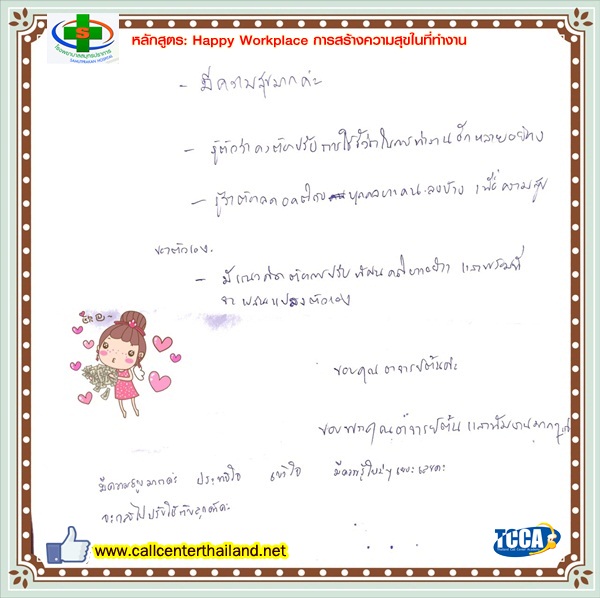 โรงพยาบาลสมุทรปราการ
SAMUTPRAKAN HOSPITAL
หลักสูตร: Happy Workplace การสร้างความสุขในที่ทำงาน
- มีความสุขมากค่ะ
- รู้ตัวว่าคงต้องปรับการใช้ชีวิตในการทำงานอีกหลายอย่าง
- รู้ว่าต้องลดอคติกับบุคคลบางคนลงบ้าง เพื่อความสุข
ของตัวเอง
- มีแนวคิดต้องการปรับทัศนคติหลายอย่าง และพร้อมที่
จะเปลี่ยนแปลงตัวเอง
ขอบคุณอาจารย์ต้นค่ะ
ขอบพระคุณอาจารย์ต้นและทีมงานมากๆค่ะ
มีความสุขมากค่ะ ประทับใจ เข้าใจ มีความรู้ใหม่ๆเยอะเลยค่ะ
จะกลับไปปรับใช้กับลูกค้าค่ะ
www.callcenterthailand.net
TCCA